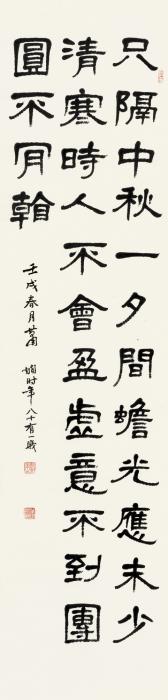 只隔中秋一夕間蟾光應未少
清寒時人不會盈虛意不到團
圓不肎看
壬戌春月蕭嫺时年八十有一歲